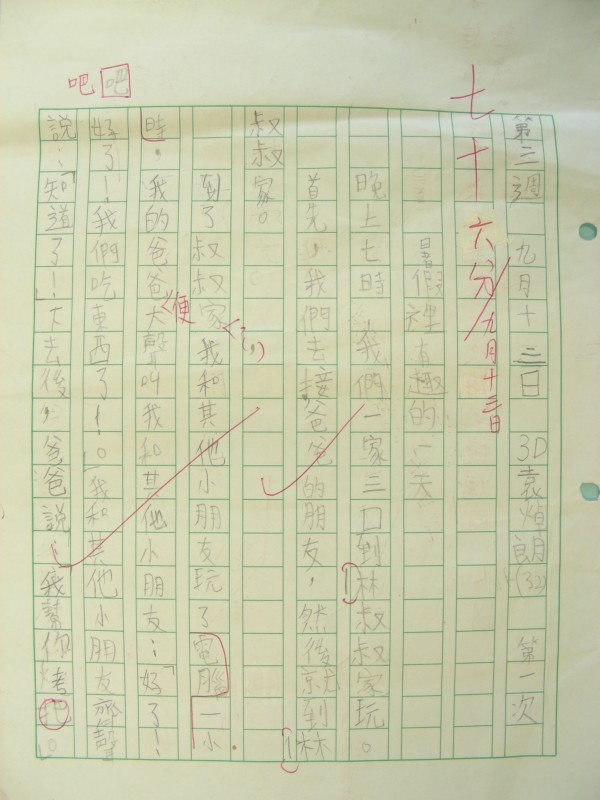 第三週 九月十三日 3D 袁焯朗(32) 第一次
七十六分/九月十三日
暑假裡有趣的一天
晚上七時,我們一家三口到林叔叔家玩。
首先,我們去接爸爸的朋友,然後就到林
叔叔家。
到了叔叔家我和其他小朋友玩了電腦一小
時。我的爸爸大聲叫我和其他小朋友:「好了!
便
好了!我們吃東西了!」。我和其他小朋友齊聲
說:「知道了!」下去後,爸爸說:「我幫你烤把」。
吧 吧